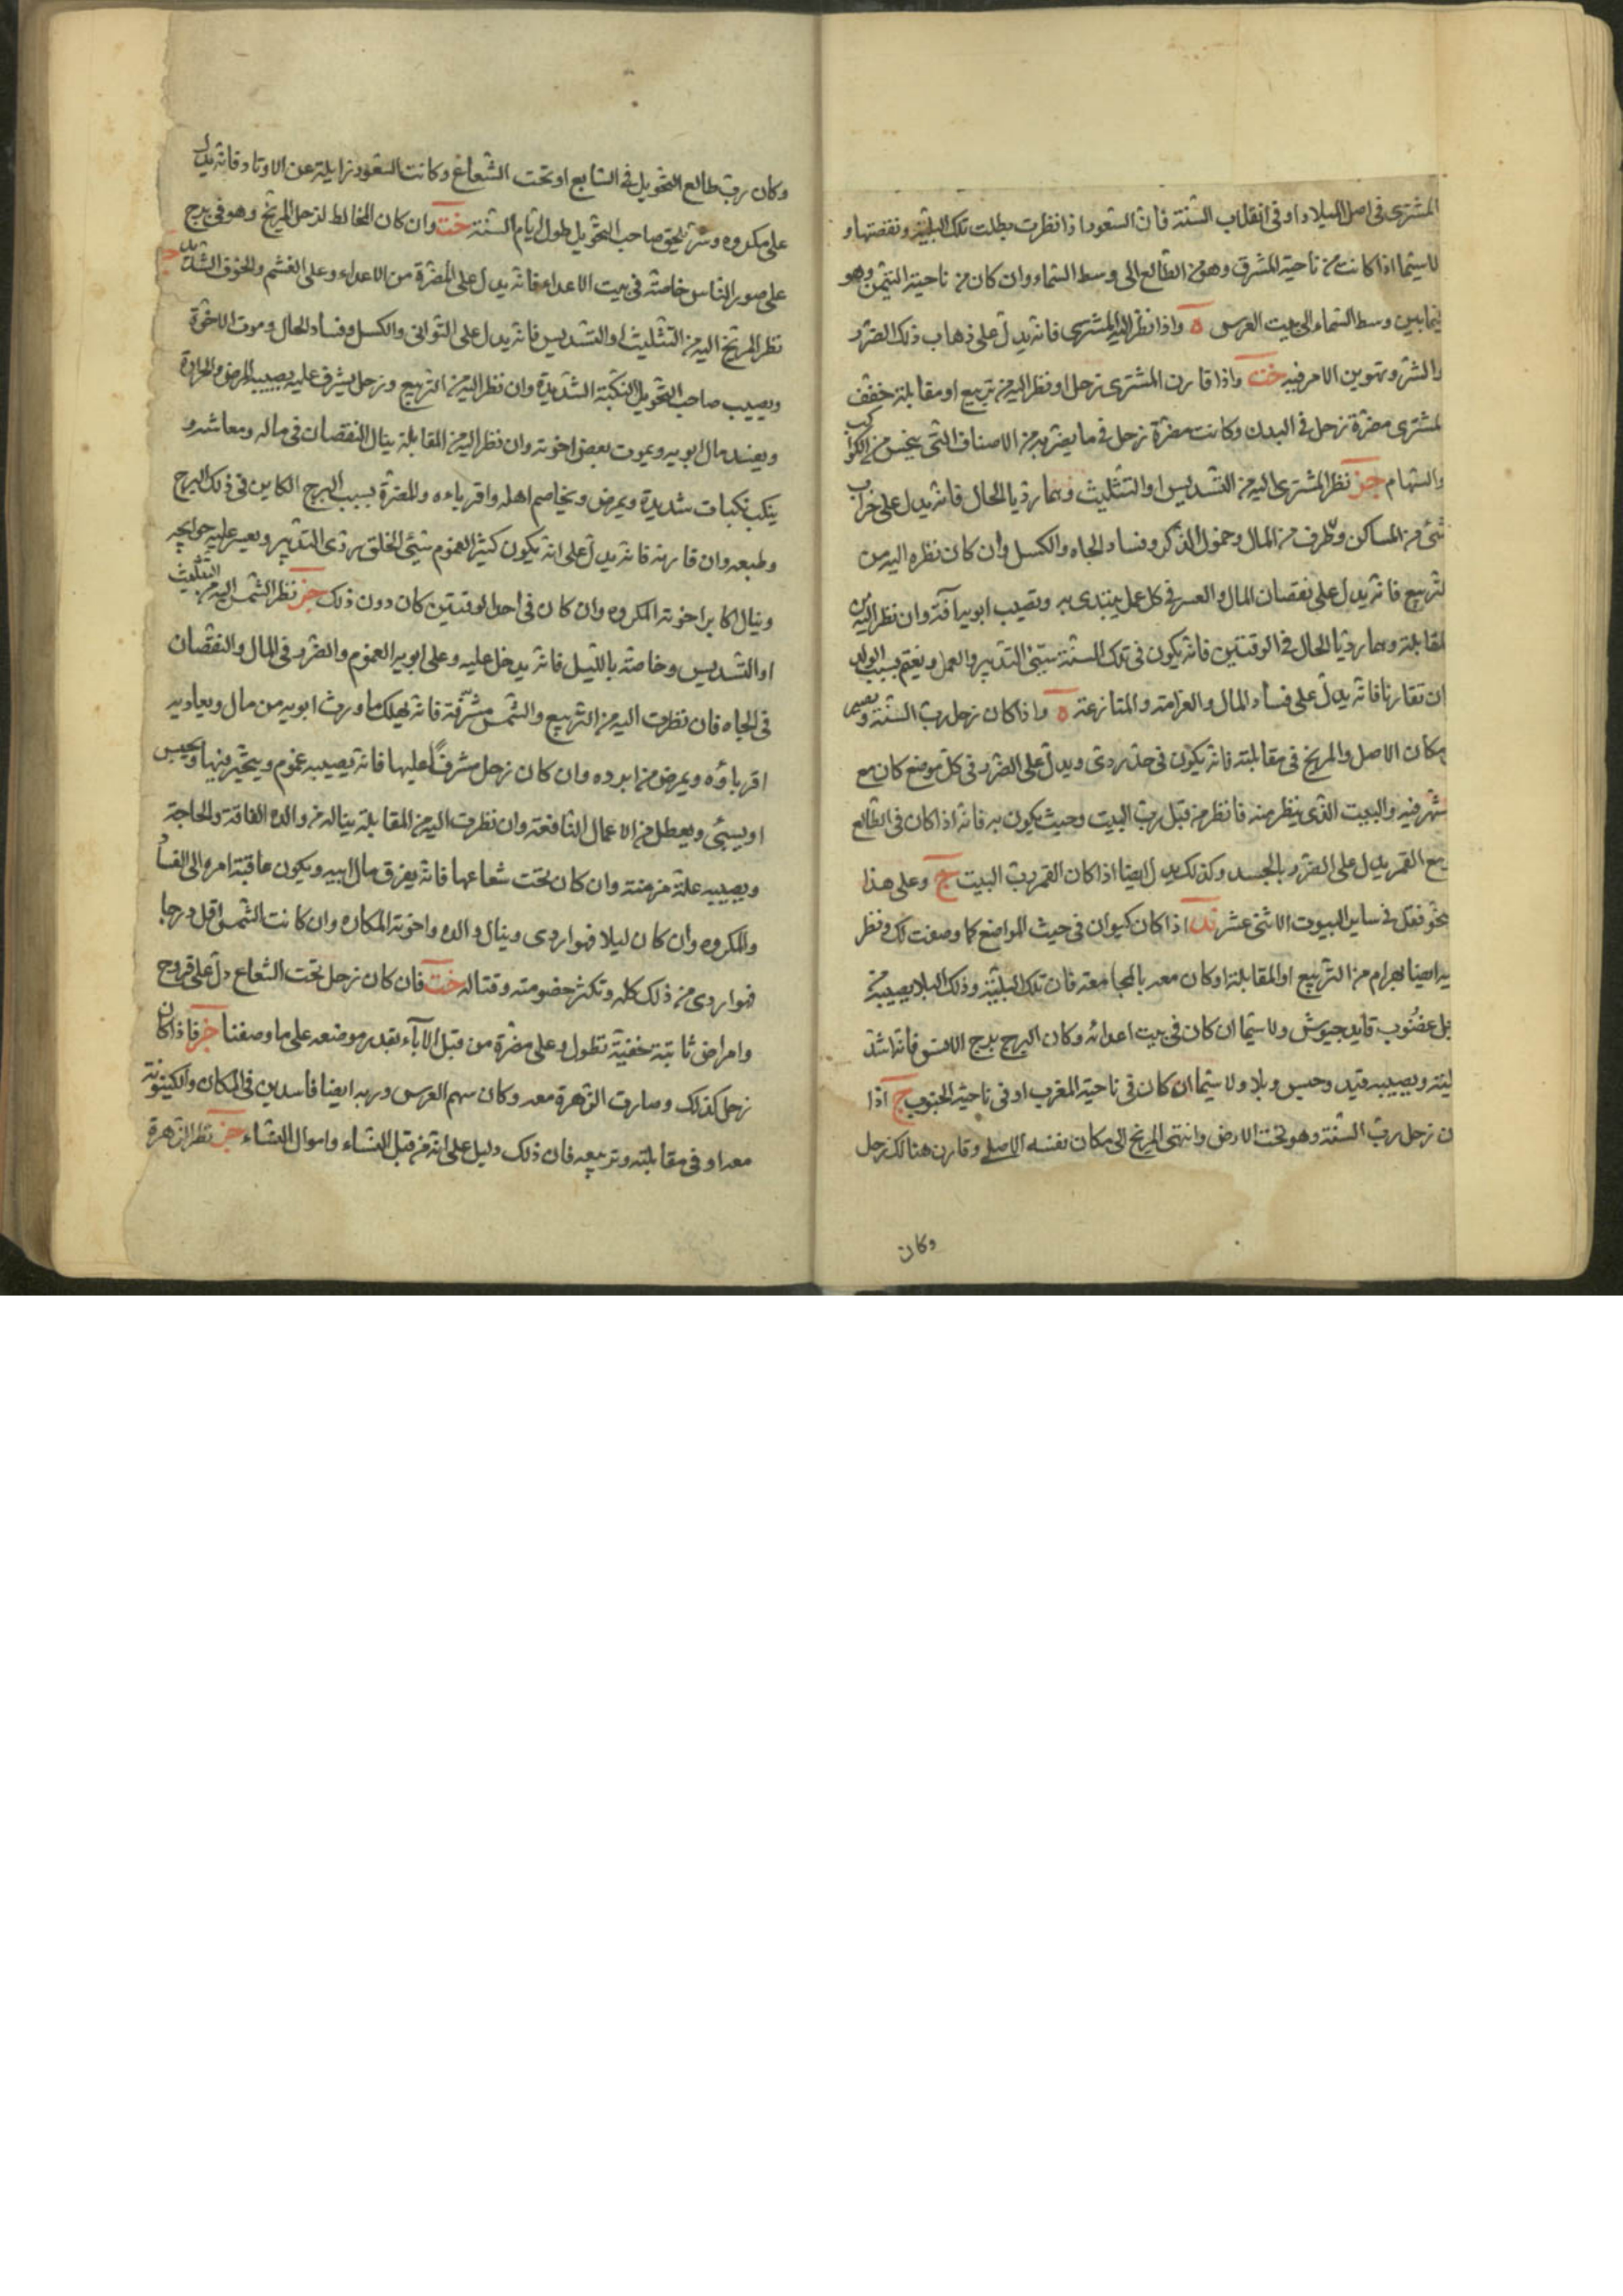 المشترى فى اصل الميلاد او فى انقلاب السنة فان السعود اذا نظرت بطلت تلك البليّة ونقصتها و
لاسيّما اذا كانت من ناحية المشرق وهو من الطالع الى وسط السماء وان كان من ناحية التيمن وهو
فيما بين وسط السماء الى بيت العرس ه واذا نظر اليه المشترى فانه يدل على ذهاب ذلك الضرّ و
الشر وتهوين الامر فيه خت واذا قارن المشترى زحل او نظر اليه من تربيع او مقابلة خفف
المشترى مضرة زحل فى البدن وكانت مضرة زحل فى ما يضر به من الاصناف التى تنحس من الكواكب
والسهام جز نظر المشترى اليه من التسديس او التثليث وهما رديا الحال فانه يدل على خراب
شئ من المساكن وطرف من المال وخمول الذكر وفساد الجاه والكسل وان كان نظره اليه من
التربيع فانه يدل على نقصان المال والعسر فى كل عمل يبتدى به وتصيب ابويه آفة وان نظر اليه من
المقابلة وهما رديا الحال فى الوقتين فانه يكون فى تلك السنة سيّئ التدبير والعمل ويغتم بسبب الولد
ان تقارنا فانه يدل على فساد المال والغرامة والمنازعة ه واذا كان زحل رب السنة ويصير
مكان الاصل والمريخ فى مقابلته فانه يكون فى حد ردى ويدل على الضرر فى كل موضع كان مع
سهم فيه والبيت الذى ينظر منه فانظر من قبل رب البيت وحيث يكون به فانه اذا كان فى الطالع
مع القمر يدل على الضرر بالجسد وكذلك يدل ايضا اذا كان القمر رب البيت ج وعلى هذا
النحو فقل فى ساير البيوت الاثنى عشر اذا كان كيوان فى حيث المواضع كما وصفت لك ونظر
اليه ايضا بهرام من التربيع او المقابلة او كان معه بالمجامعة فان تلك البليّة وذلك البلا يصيبه من
رجل غضوب قايد جيوش ولاسيما ان كان فى بيت اعدائه وكان البرج برج الانس فانه اشد
لبليته ويصيبه قيد وحبس وبلا ولاسيما ان كان فى ناحية المغرب او فى ناحية الجنوب ج اذا
كان زحل رب السنة وهو تحت الارض وانتهى المريخ الى مكان نفسه الاصلى وقارن هنالك زحل
وكان
وكان رب طالع التحويل فى السابع او تحت الشعاع وكانت السعود زايلة عن الاوتاد فانه يدل
على مكروه وشر يلحق صاحب التحويل طول ايام السنة خت وان كان المخالط لزحل المريخ وهو فى برج
على صور الناس خاصة فى بيت الاعداء فانه يدل على المضرة من الاعداء وعلى الغشم والخوف الشديد
نظر المريخ اليه من التثليث او التسديس فانه يدل على التوانى والكسل وفساد الحال وموت الاخوة
ويصيب صاحب التحويل النكبة الشديدة وان نظر اليه من التربيع وزحل يشرف عليه يصيبه المرض والحرارة
ويفسد مال ابويه ويموت بعض اخوته وان نظر اليه من المقابلة ينال النقصان فى ماله ومعاشه و
ينكب نكبات شديدة ويمرض ويخاصم اهله واقرباءه والمضرة بسبب البرج الكاين فى ذلك البرج
وطبعه وان قارنه فانه يدل على انه يكون كثير الغموم سيّئ الخلق ردى التدبير ويعسر عليه حوايجه
وينال اكابر اخوته المكروه وان كان فى احد الوقتين كان دون ذلك جز نظر الشمس اليه من التثليث
او التسديس وخاصة بالليل فانه يدخل عليه وعلى ابويه الغموم والضرر فى المال والنقصان
فى الجاه فان نظرت اليه من التربيع والشمس مشرّفة فانه يهلك ما ورث ابويه من مال ويعاديه
اقرباؤه ويمرض من ابرده وان كان زحل مشرفًا عليها فانه يصيبه غموم ويتحير فيها ويحبس
او يسبى ويعطل من الاعمال النافعة وان نظرت اليه من المقابلة يناله من والده الفاقة والحاجة
ويصيبه علة مزمنة وان كان تحت شعاعها فانه يفرق مال ابيه ويكون عاقبة امره الى الفساد
والمكروه وان كان ليلا فهو اردى وينال والده واخوته المكاره وان كانت الشمس اقل درجا
فهو اردى من ذلك كله وتكثر خصومته وقتاله خت فان كان زحل تحت الشعاع دل على قروح
وامراض ثابتة خفية تطول وعلى مضرة من قبل الآباء بقدر موضعه على ما وصفنا جز فاذا كان
زحل كذلك وصارت الزهرة معه وكان سهم العرس وربه ايضا فاسدين فى المكان والكينونة
معه او فى مقابلته وتربيعه فان ذلك دليل على انه من قبل النساء واموال النساء جز نظر الزهرة